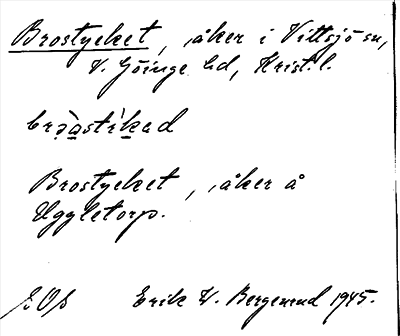 Brostycket, åker i Vittsjö sn,
V. Göinge hd, Krist. l.
Brostycket, åker å
Uggletorp.
Erik W. Bergerud 1945.